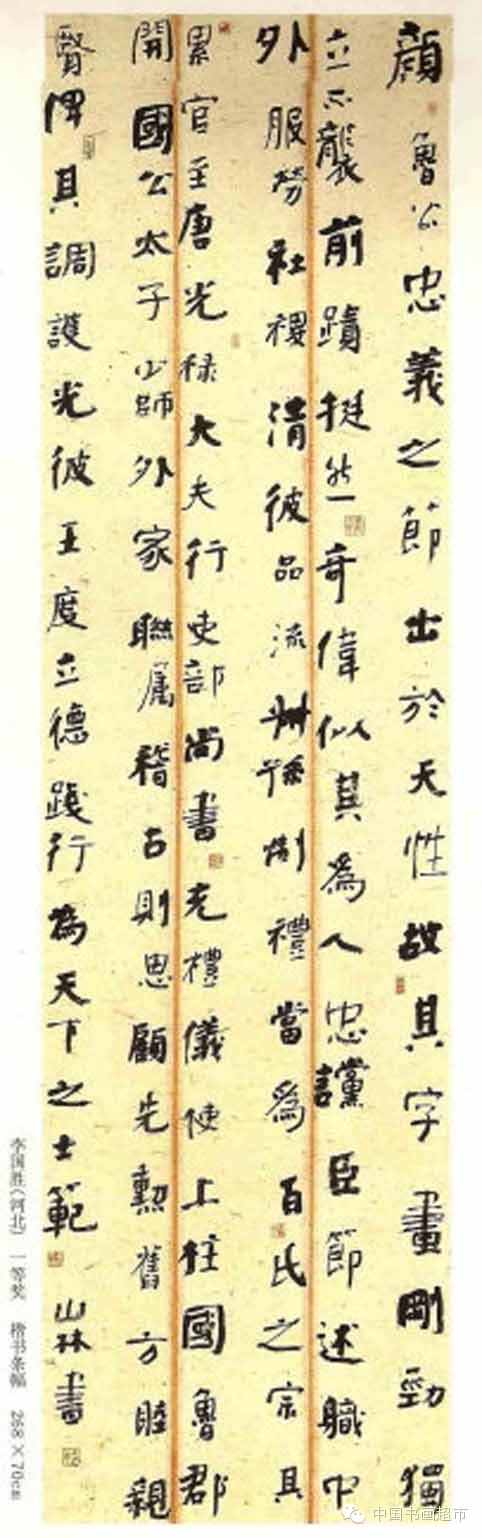 顏魯公忠義之節出於天性故其字畫剛勁獨
立不襲前蹟挺然奇偉似其為人忠讜臣節述職中
外服勞社稷清彼品流禮當為百氏之宗其
累官至唐光祿大夫行吏部尚書充禮儀使上柱國魯郡
開國公太子少師外家聯属稽古則思顧先勲舊方睦親
賢俾其調護光彼王度立德踐行為天下之士範 山林書
李国胜(河北) 一等奖 楷书条幅 268×70cm
中国书画超市